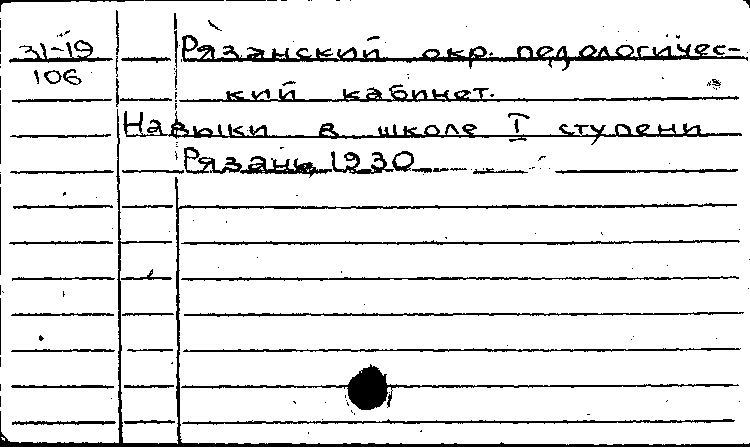 31-19 Рязанский окр. педологичес-
106 кий кабинет.
Навыки в школе I ступени
Рязань, 1930